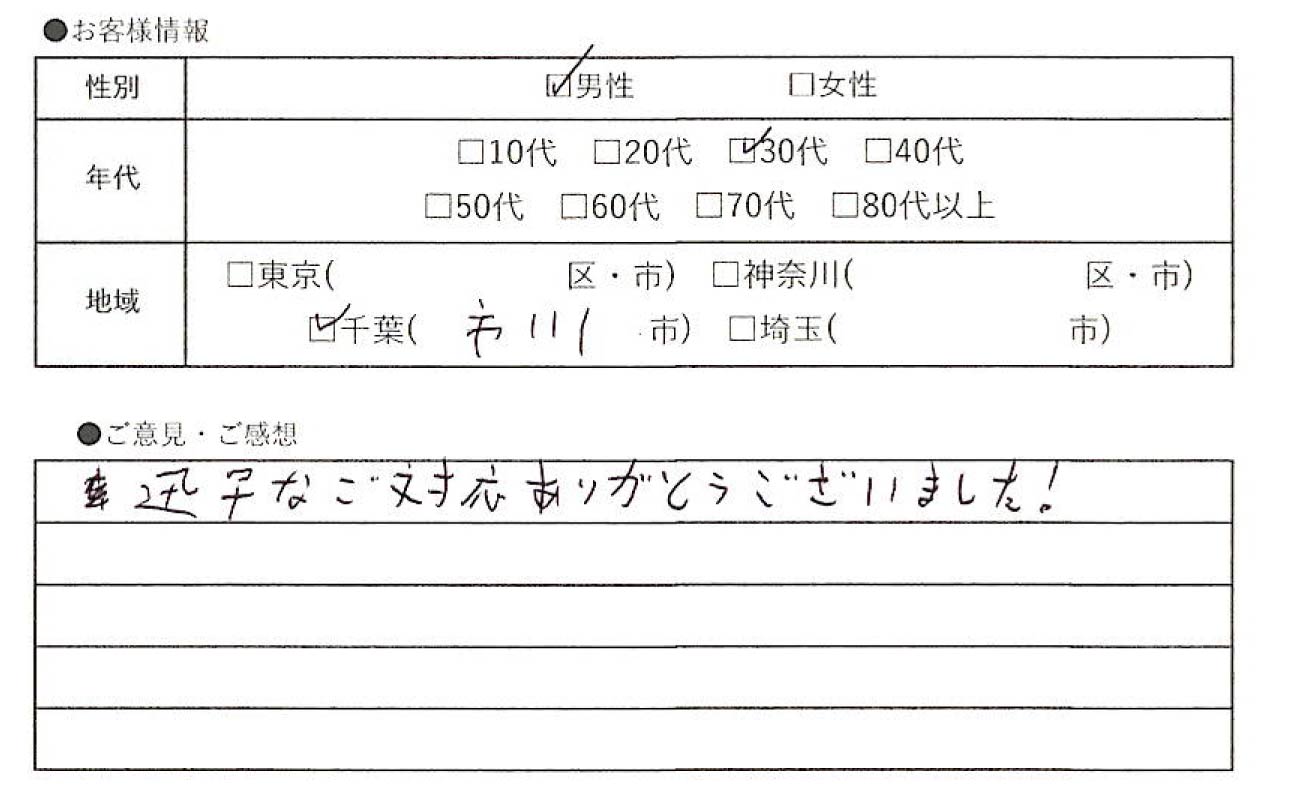 ●お客様情報
性別 ☑男性 □女性
年代 □10代 □20代 ☑30代 □40代
□50代 □60代 □70代 □80代以上
地域 □東京( 区・市) □神奈川( 区・市)
☑千葉( 市川 市) □埼玉( 市)
●ご意見・ご感想
迅早なご対応ありがとうございました!